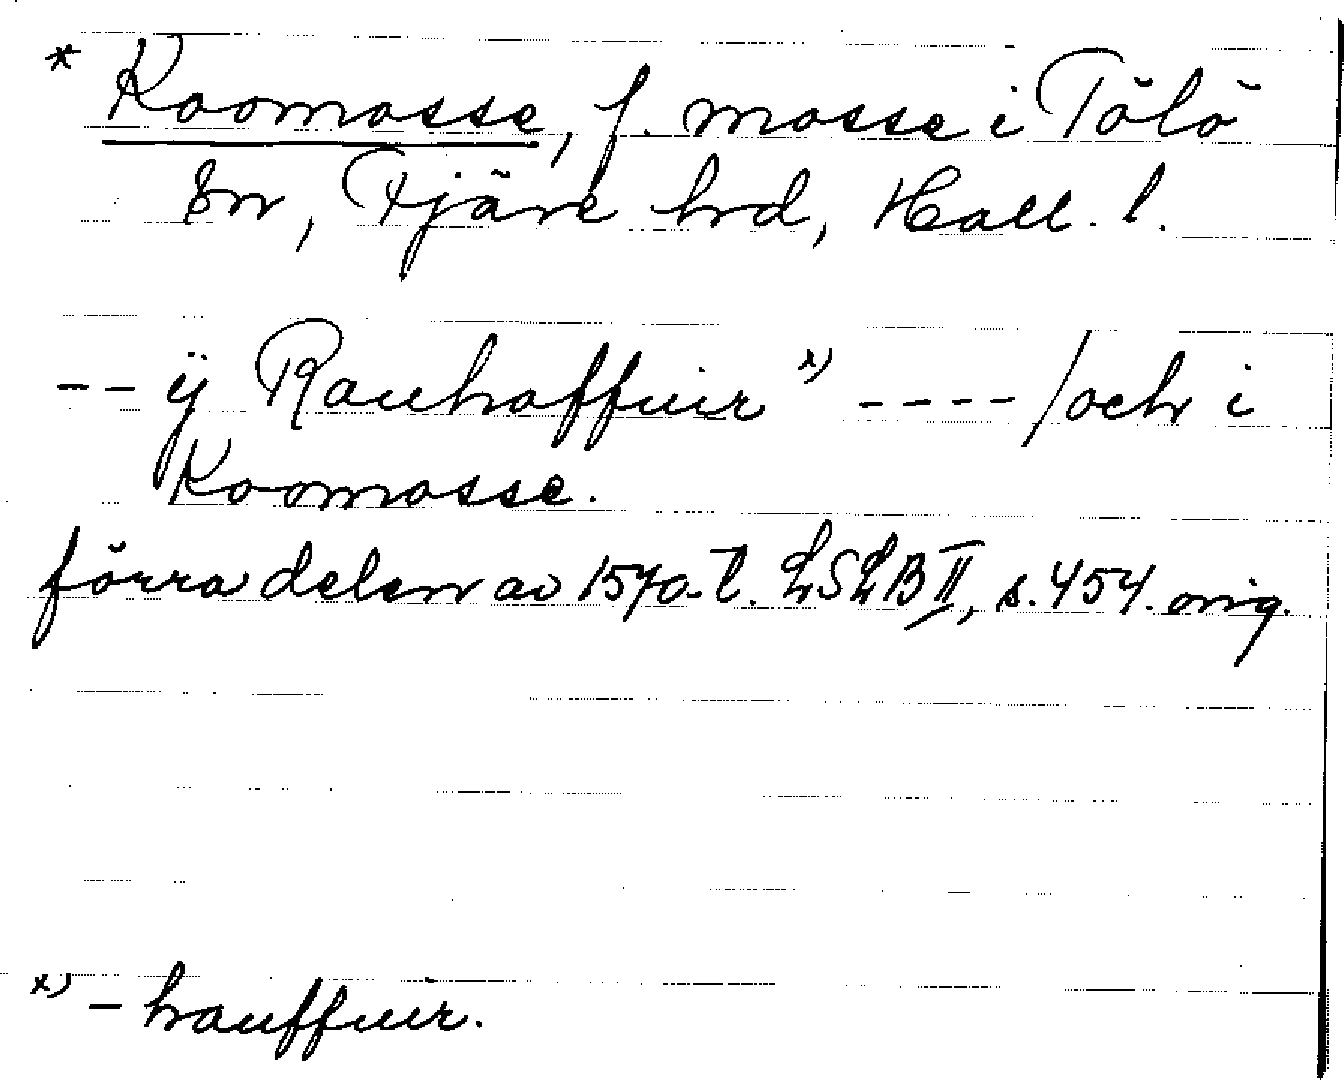 * Koomosse, f. mosse i Tölö
sn, Fjäre hrd, Hall. l.
-- ÿ Rauhaffuir x) ---- /och i
Koomosse.
förra delen av 1570-t. LSLB II, s. 454. orig.
x) - hauffuir.